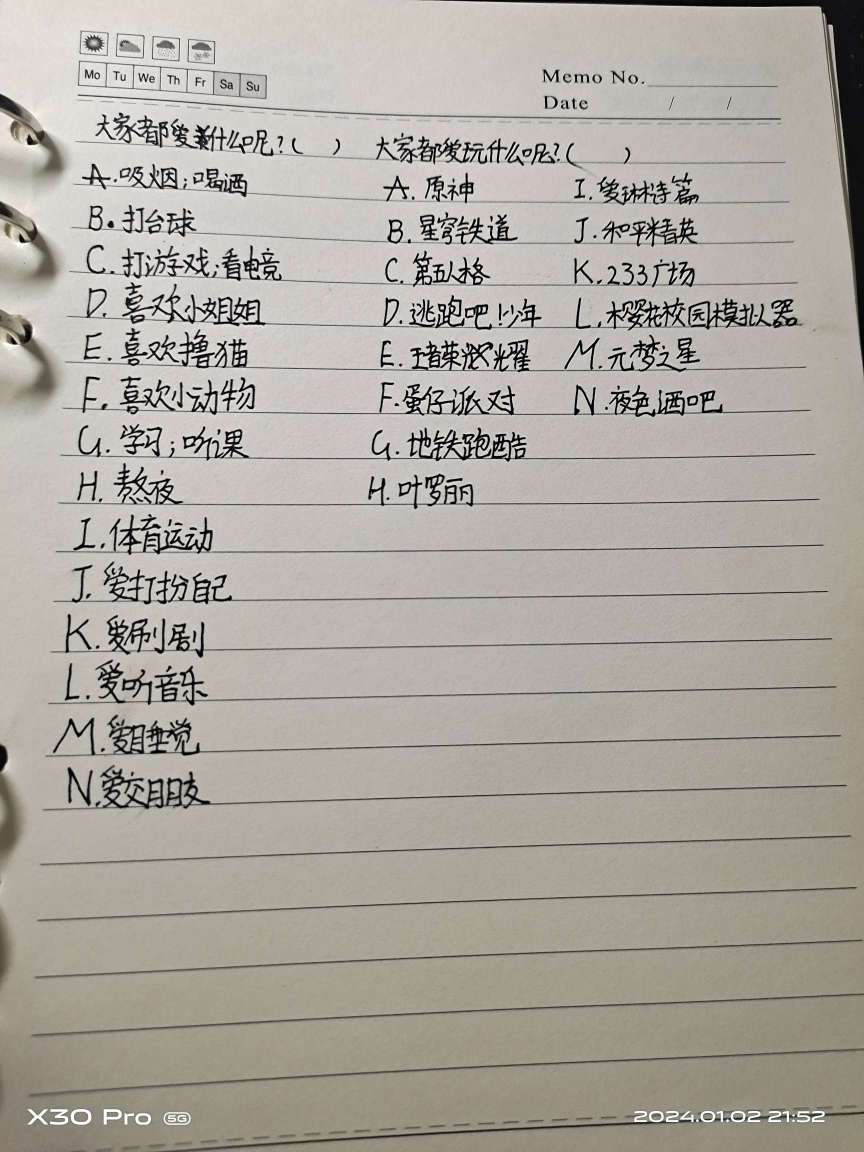 Mo Tu We Th Fr Sa Su
Memo No.
Date / /
大家都爱什么呢?( )
A.吸烟;喝酒
B.打台球
C.打游戏;看电竞
D.喜欢小姐姐
E.喜欢撸猫
F.喜欢小动物
G.学习;听课
H.熬夜
I.体育运动
J.爱打扮自己
K.爱刷剧
L.爱听音乐
M.爱睡觉
N.爱交朋友
大家都爱玩什么呢?( )
A.原神
B.星穹铁道
C.第五人格
D.逃跑吧!少年
E.王者荣耀
F.蛋仔派对
G.地铁跑酷
H.叶罗丽
I.爱琳诗篇
J.和平精英
K.233广场
L.樱花校园模拟器
M.元梦之星
N.夜色酒吧
X30 Pro 5G
2024.01.02 21:52